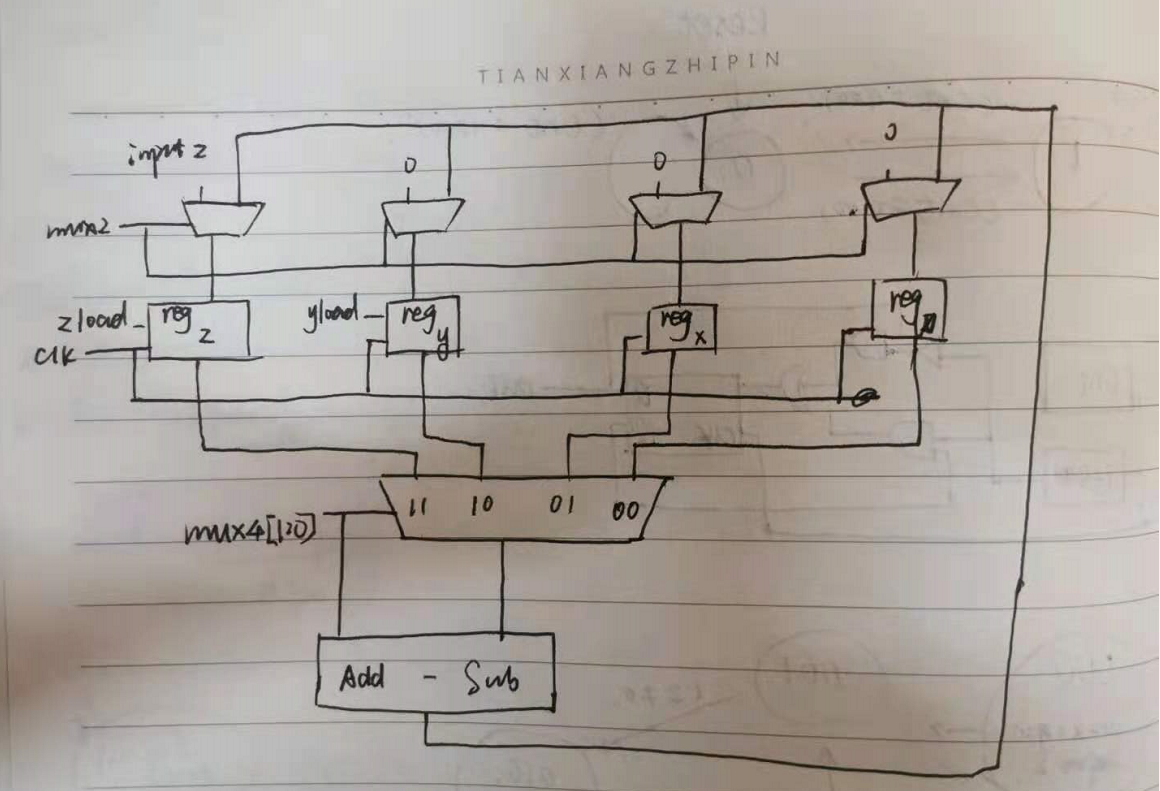 TIANXIANGZHIPIN
input z
0
0
0
mux2
zload
reg z
yload
reg y
reg x
reg
clk
11 10 01 00
mux4[1:0]
Add - Sub